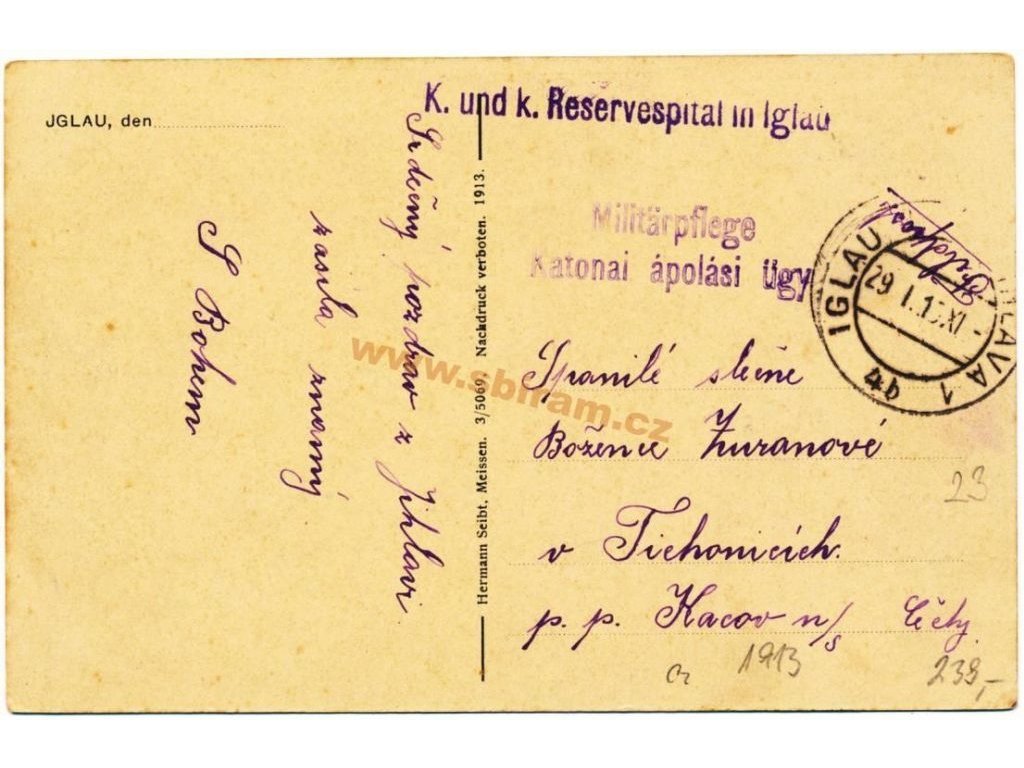 JGLAU, den
K. und k. Reservespital in Iglau
Militärpflege
Katonai ápolási ügy
IGLAU
29 I.15.XI
4b
IGLAVA 1
Srdečný pozdrav z Jihlavi
zasíla známý
S Bohem
Hermann Seibt, Meissen. 3/5069 Nachdruck verboten. 1913.
www.sbiram.cz
Spanilé slečne
Božence Zuranové
v Tichonicích.
p. p. Kacov n/s Čechy
23
1913
239,-